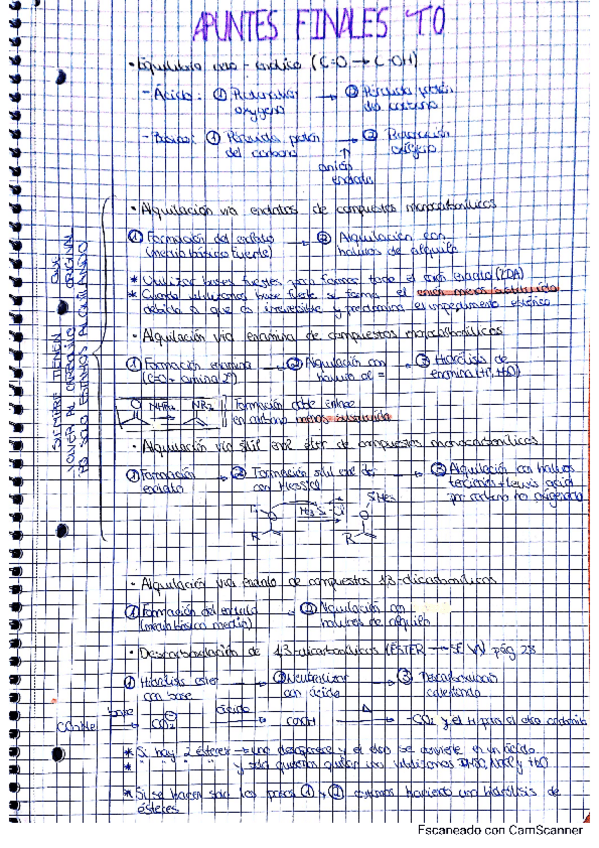 APUNTES FINALES TO
• Equilibrio ceto-enólico (C=O → C-OH)
- Ácido: ① Protonación → ② Pérdida protón
oxígeno del carbono
- Básico: ① Pérdida protón → ② Protonación
del carbono oxígeno
anión
enolato
• Alquilación vía enolatos de compuestos monocarbonílicos
① Formación del enolato → ② Alquilación con
(medio básico fuerte) haluros de alquilo
* Utilizar bases fuertes para formar todo el anión enolato (LDA)
* Cuando utilizamos base fuerte se forma el menos sustituido
debido a que es irreversible y predomina el impedimento estérico
• Alquilación vía enamina de compuestos monocarbonílicos
① Formación enamina → ② Alquilación con → ③ Hidrólisis de
(C=O + amina 2º) haluro de enamina (H⁺, H₂O)
O NHR₂ → NR₂ Formación doble enlace
en carbono menos sustituido
• Alquilación vía silil enol éter de compuestos monocarbonílicos
① Formación → ② Formación silil enol éter → ③ Alquilación con haluros
enolato con Me₃SiCl terciarios + Lewis
por carbono no oxigenado
SIEMPRE TIENEN QUE
VOLVER AL
O Me₃Si-Cl → O SiMe₃
R R
• Alquilación vía enolato de compuestos 1,3-dicarbonílicos
① Formación del enolato → ② Alquilación con
(medio básico medio) haluros de alquilo
• Descarboxilación de 1,3-dicarbonílicos (ÉSTER → pág 28
① Hidrólisis éster → ② Neutralizar → ③ Descarboxilar
con base con ácido calentando
COOMe base → CO₂⁻ ácido → COOH Δ → -CO₂ y el H para el otro carbonilo
* Si hay 2 ésteres → uno desaparece y el otro se convierte en un ácido.
* y solo queremos quitar uno utilizamos DMSO, NaCl y H₂O
* Si se hacen solo los pasos ① y ② estamos haciendo una hidrólisis de
ésteres
Escaneado con CamScanner